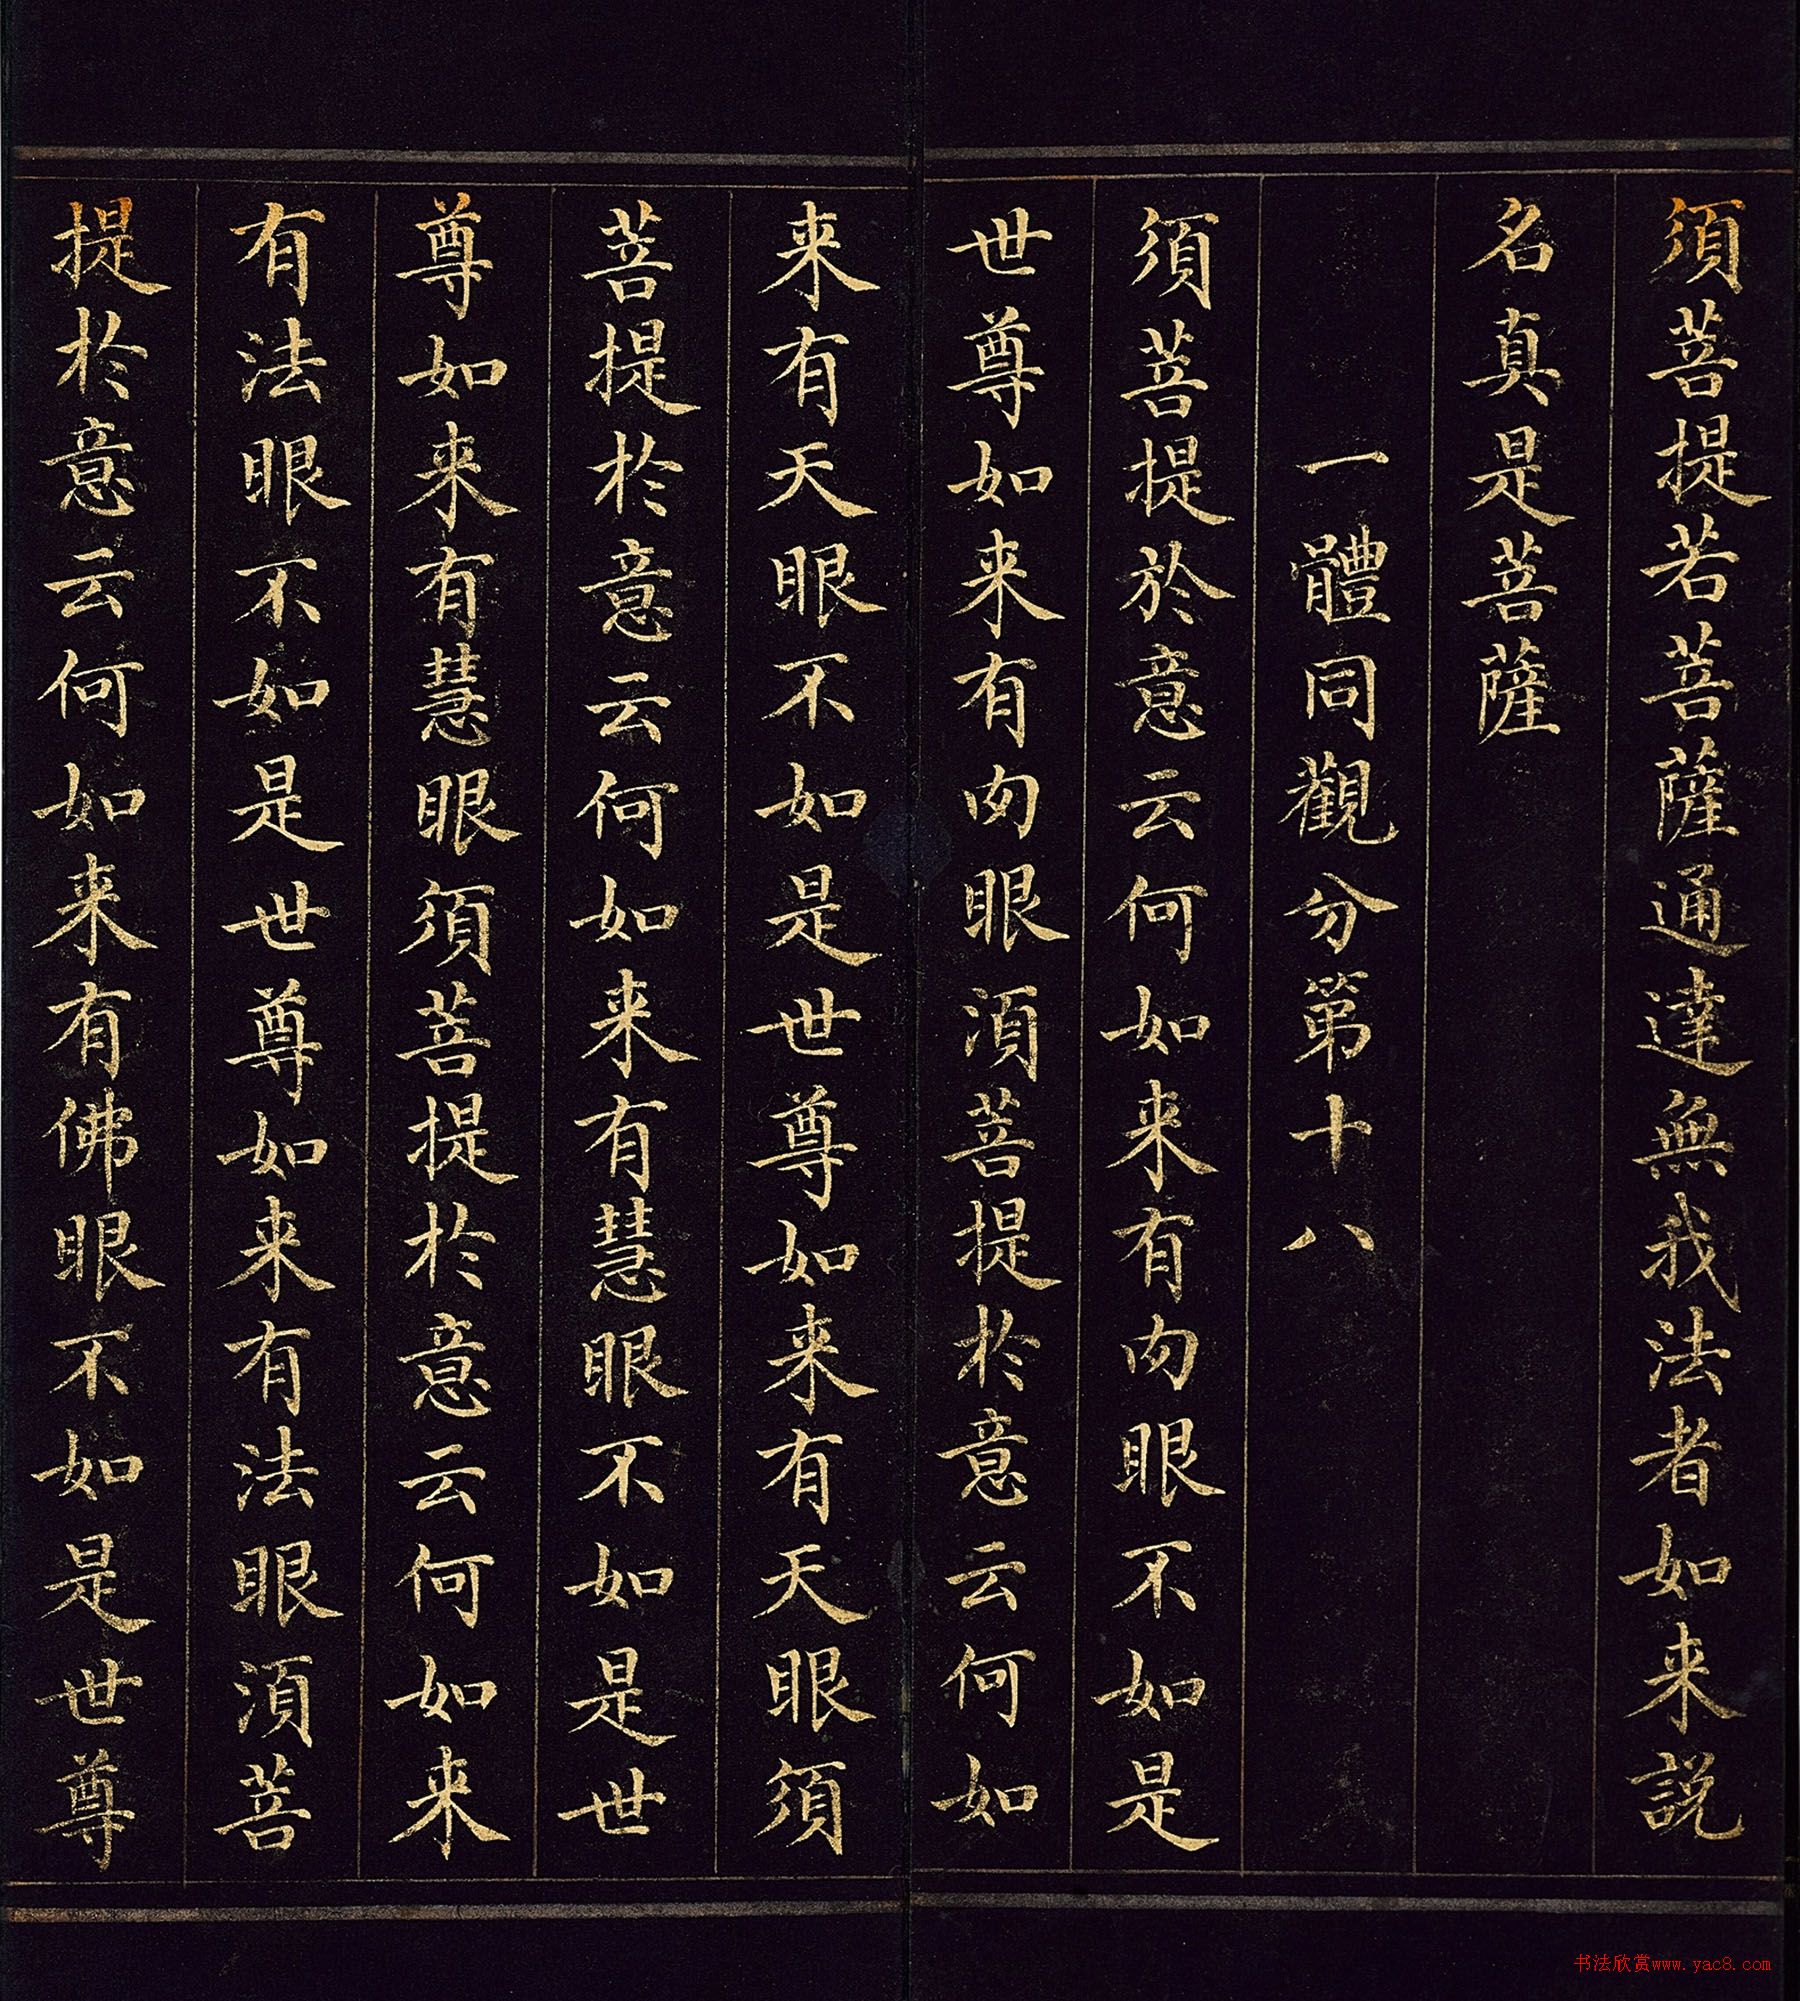 須菩提若菩薩通達無我法者如来説
名真是菩薩
一體同觀分第十八
須菩提於意云何如来有肉眼不如是
世尊如来有肉眼須菩提於意云何如
来有天眼不如是世尊如来有天眼須
菩提於意云何如来有慧眼不如是世
尊如来有慧眼須菩提於意云何如来
有法眼不如是世尊如来有法眼須菩
提於意云何如来有佛眼不如是世尊
书法欣赏www.yac8.com